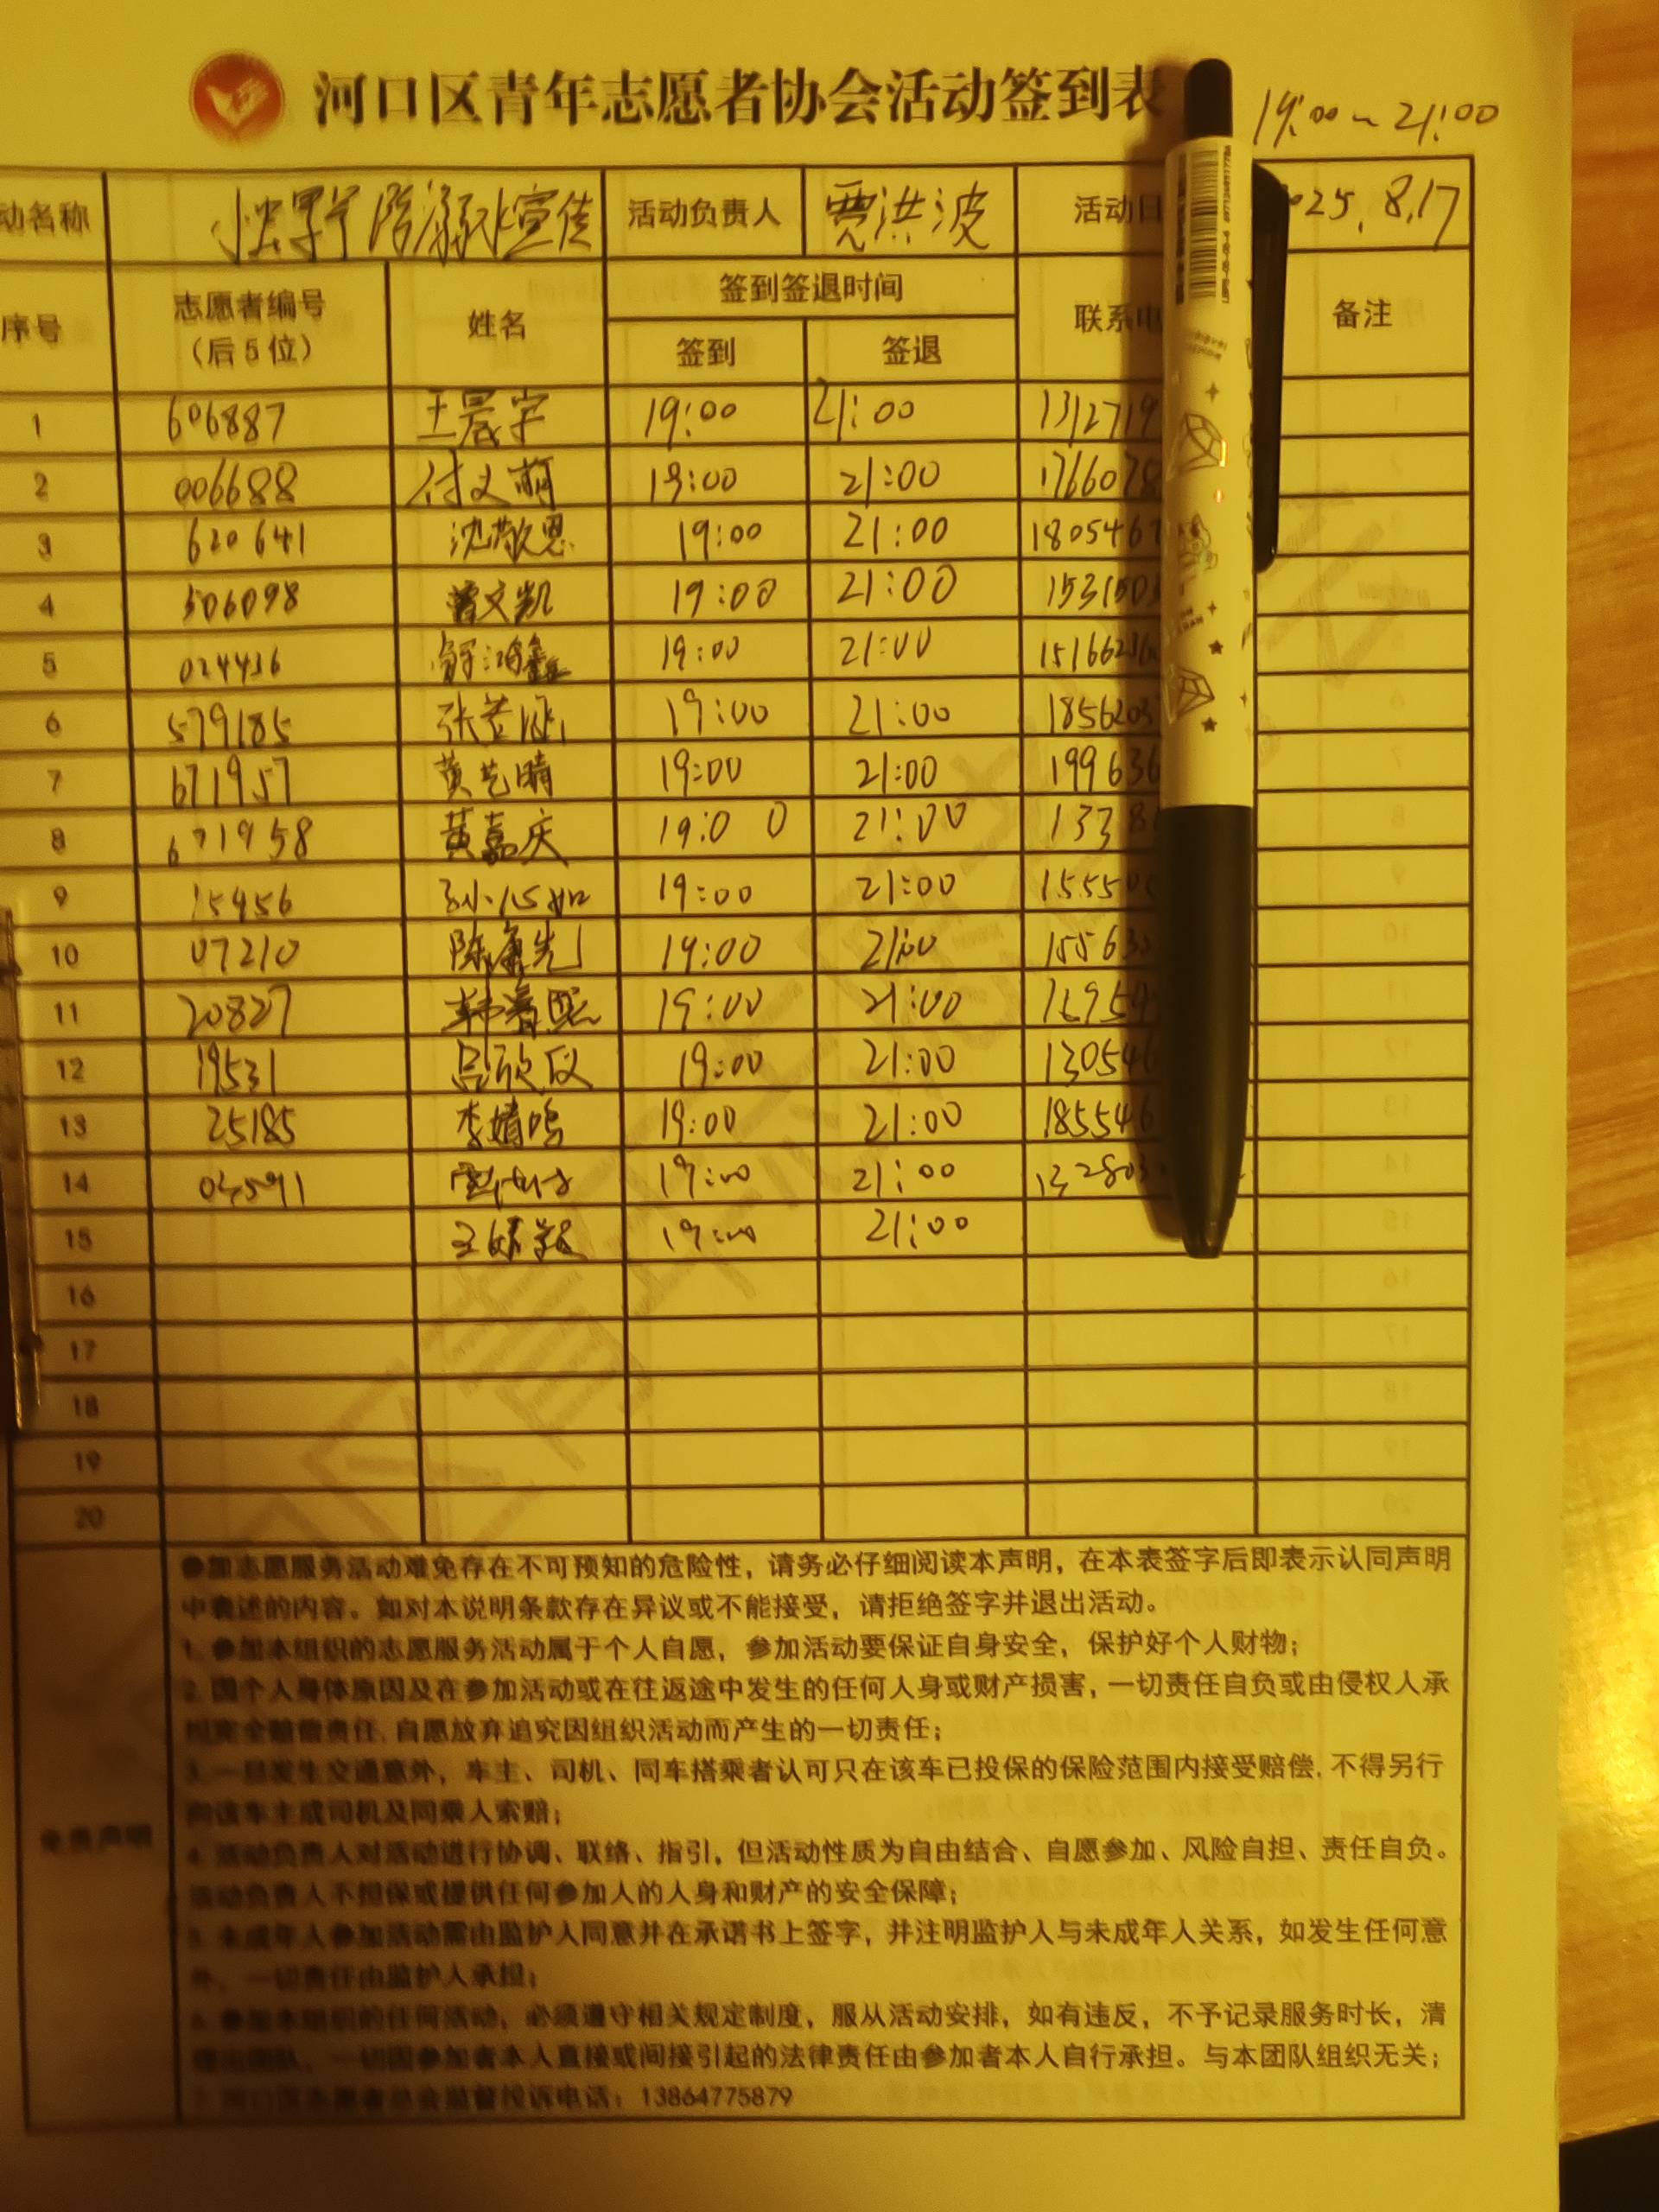 河口区青年志愿者协会活动签到表
19:00~21:00
动名称 防溺水宣传 活动负责人 贾洪波 活动日 025.8.17
序号 志愿者编号（后5位） 姓名 签到签退时间 联系电 备注
签到 签退
1 606887 王晨宇 19:00 21:00 1312719
2 006688 付义萌 19:00 21:00 1766078
3 620641 沈敬恩 19:00 21:00 1805467
4 506098 曹文凯 19:00 21:00 153150
5 024436 解鸿鑫 19:00 21:00 15166
6 579185 张芸涵 19:00 21:00 1856205
7 671957 黄艺晴 19:00 21:00 199636
8 671958 黄嘉庆 19:00 21:00 1338
9 15456 孙心如 19:00 21:00 15550
10 07210 陈康先 19:00 21:00 15563
11 20827 韩春熙 19:00 21:00
12 19531 吕欣仪 19:00 21:00 130546
13 25185 李婧鸣 19:00 21:00 185546
14 19:00 21:00 132803
15 19:00 21:00
16
17
18
19
20
免责声明
参加志愿服务活动难免存在不可预知的危险性，请务必仔细阅读本声明，在本表签字后即表示认同声明
中表述的内容。如对本说明条款存在异议或不能接受，请拒绝签字并退出活动。
1.参加本组织的志愿服务活动属于个人自愿，参加活动要保证自身安全，保护好个人财物；
2.因个人身体原因及在参加活动或在往返途中发生的任何人身或财产损害，一切责任自负或由侵权人承
担完全赔偿责任，自愿放弃追究因组织活动而产生的一切责任；
3.一旦发生交通意外，车主、司机、同车搭乘者认可只在该车已投保的保险范围内接受赔偿，不得另行
向该车主或司机及同乘人索赔；
4.活动负责人对活动进行协调、联络、指引，但活动性质为自由结合、自愿参加、风险自担、责任自负。
活动负责人不担保或提供任何参加人的人身和财产的安全保障；
5.未成年人参加活动需由监护人同意并在承诺书上签字，并注明监护人与未成年人关系，如发生任何意
外，一切责任由监护人承担；
6.参加本组织的任何活动，必须遵守相关规定制度，服从活动安排，如有违反，不予记录服务时长，清
理出团队，一切因参加者本人直接或间接引起的法律责任由参加者本人自行承担。与本团队组织无关；
投诉电话：13864775879